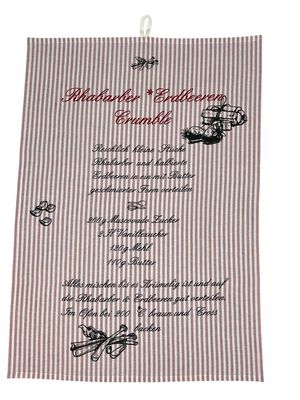 Rhabarber * Erdbeeren
Crumble
Reichlich kleine Stücke
Rhabarber und halbierte
Erdbeeren in ein mit Butter
geschmierter Form verteilen
200g Muscovado Zucker
2 Tl Vanillezucker
120g Mehl
110g Butter
Alles mischen bis es Krümelig ist und auf
die Rhabarber & Erdbeeren gut verteilen.
Im Ofen bei 200 °C braun und Cross
backen